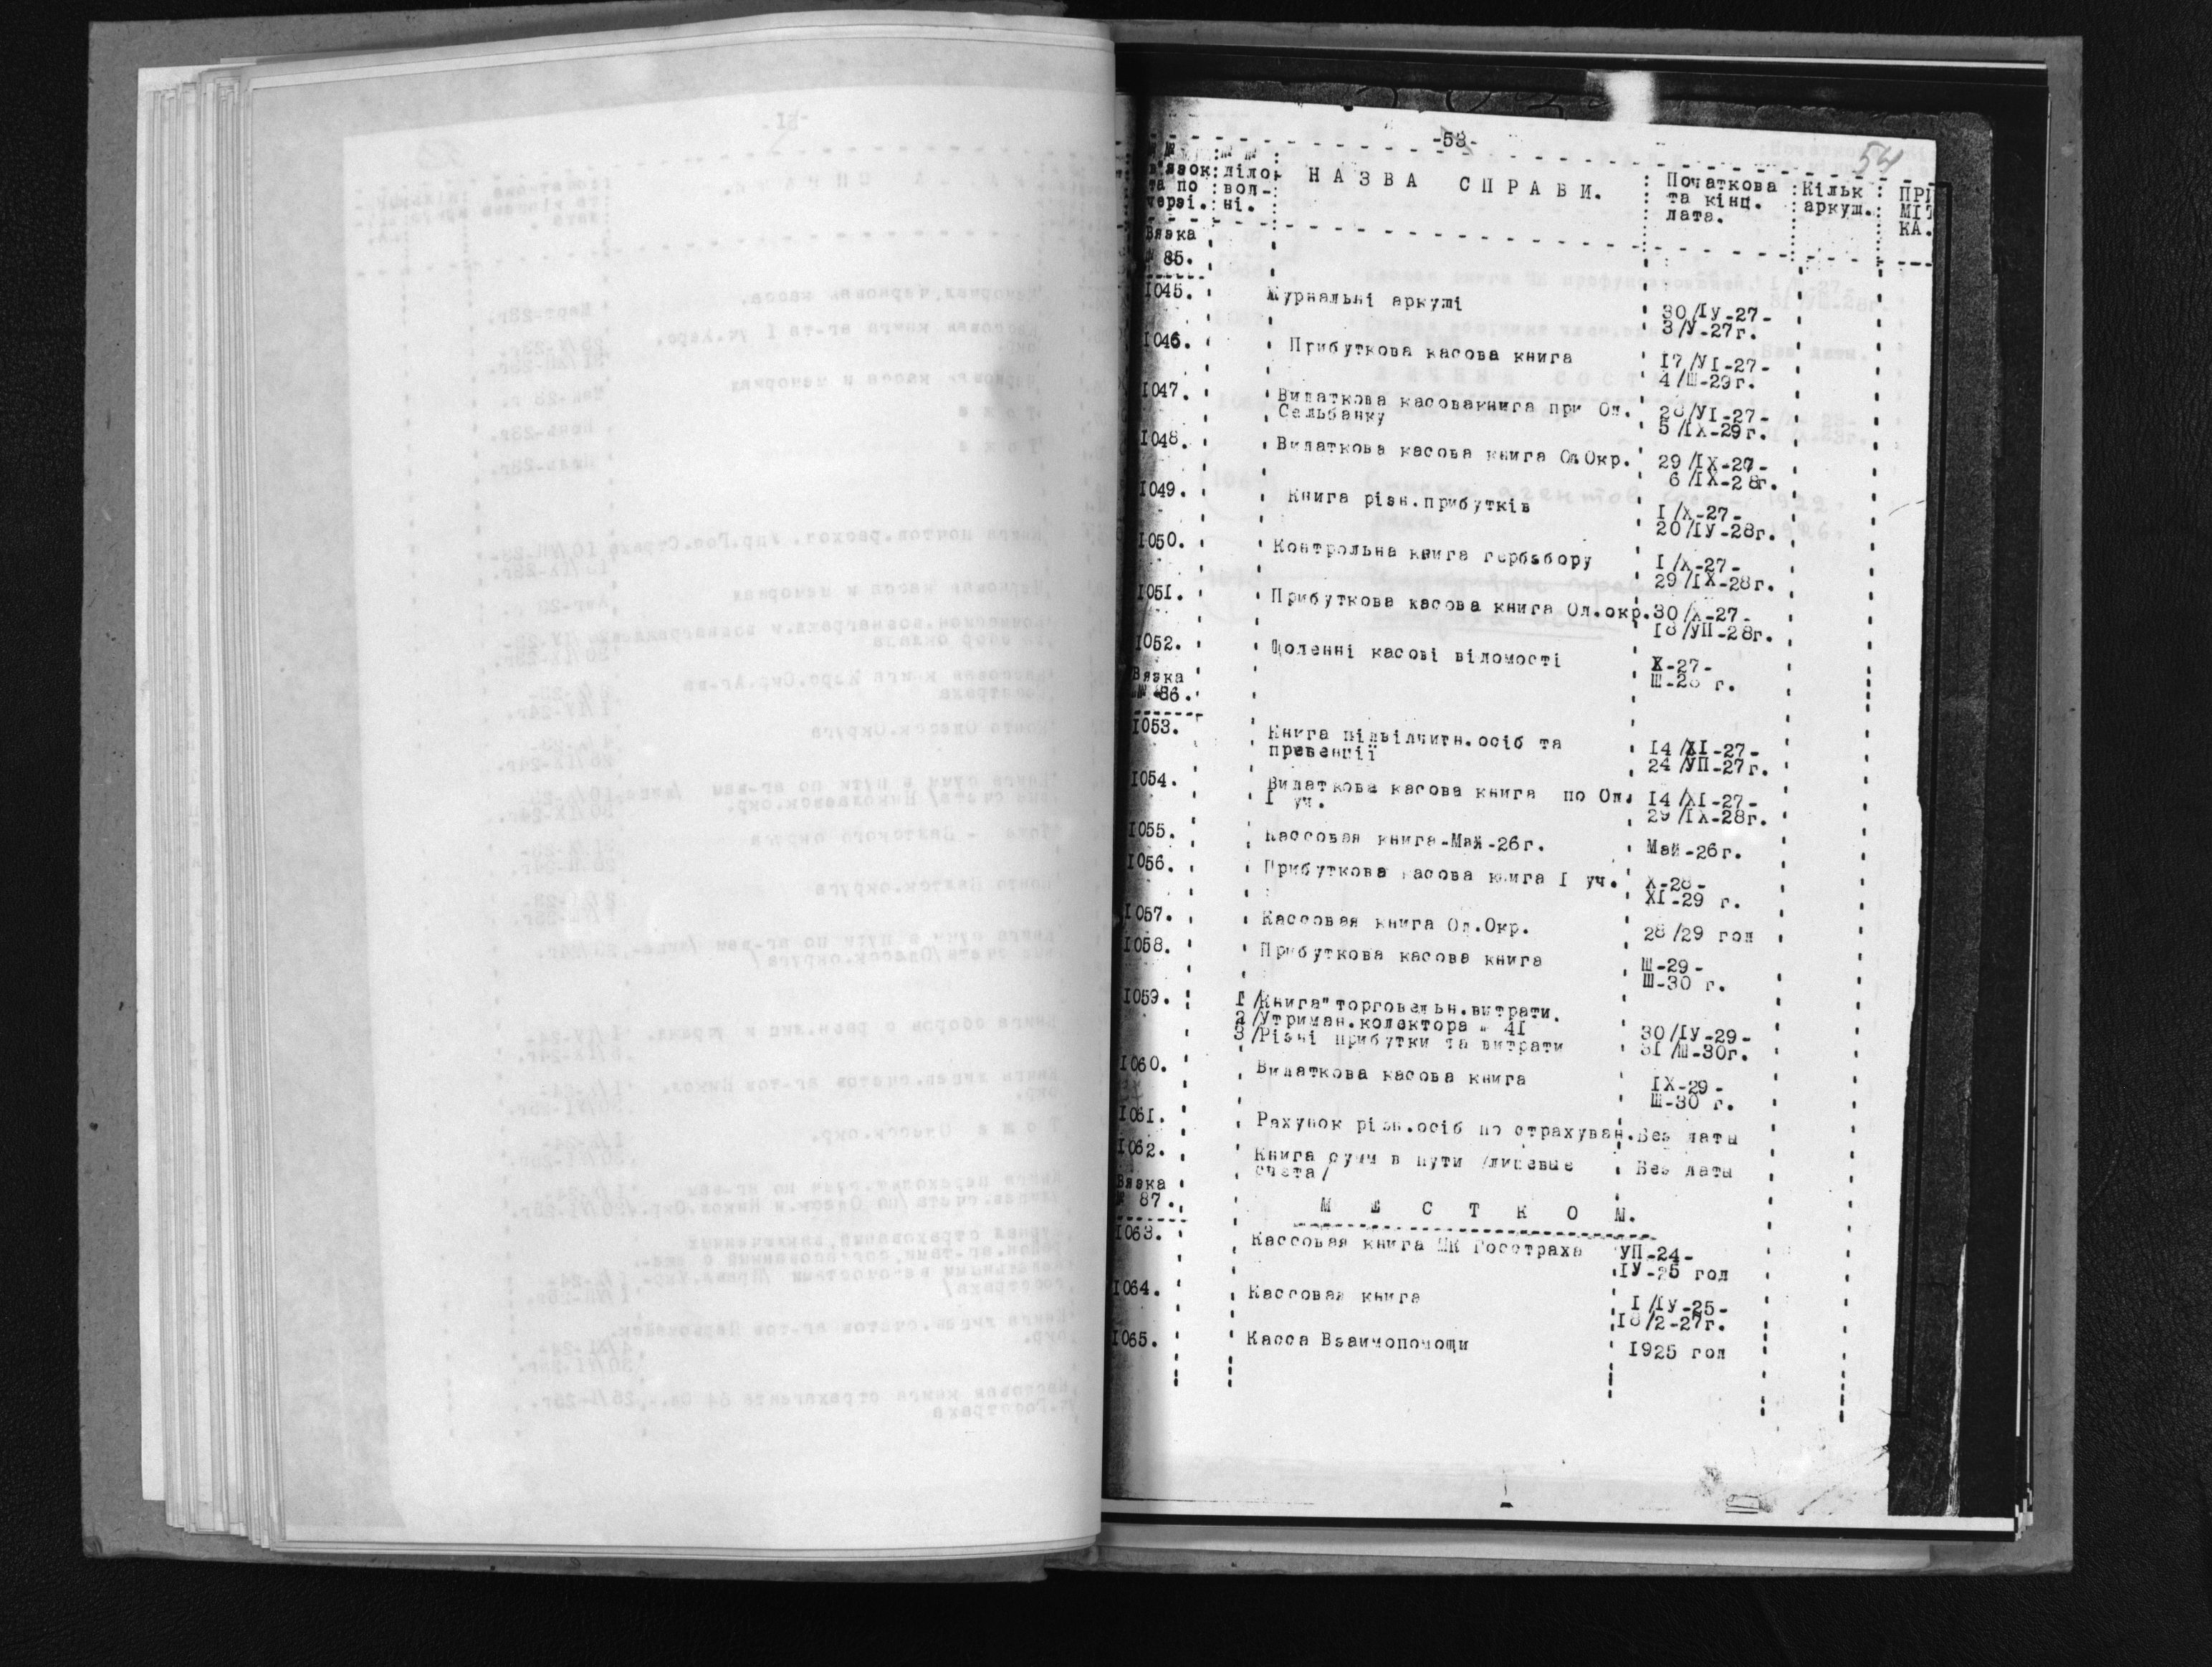 -53-
54
№№ в'язок та по черзі. : №№ діло- вод- ні. : НАЗВА СПРАВИ. : Початкова та кінц. дата. : Кільк аркуш. : ПРИ МІТ КА.
Вязка
№ 85.
1045. Журнальні аркуші 30/ІУ-27-
3/У-27г.
1046. Прибуткова касова книга 17/УІ-27-
4/Ш-29г.
1047. Видаткова касовакнига при Од. 28/УІ-27-
Сельбанку 5/ІХ-29г.
1048. Видаткова касова книга Од.Окр. 29/ІХ-27-
6/ІХ-28г.
1049. Книга різн.прибутків І/Х-27-
20/ІУ-28г.
1050. Контрольна книга гербзбору І/Х-27-
29/ІХ-28г.
1051. Прибуткова касова книга Од.окр. 30/Х-27-
18/УП-28г.
1052. Щоденні касові відомості Х-27-
Ш-28 г.
Вязка
№ 86.
1053. Книга підвідчитн.осіб та 14/ХІ-27-
превенції 24/УП-27г.
1054. Видаткова касова книга по Од. 14/ХІ-27-
І уч. 29/ІХ-28г.
1055. Кассовая книга-Май-26г. Май-26г.
1056. Прибуткова касова книга І уч. Х-28-
ХІ-29 г.
1057. Кассовая книга Од.Окр. 28/29 год
1058. Прибуткова касова книга Ш-29-
Ш-30 г.
1059. 1/Книга"торговельн.витрати.
2/Утриман.колектора № 41 30/ІУ-29-
3/Різні прибутки та витрати 31/Ш-30г.
1060. Видаткова касова книга ІХ-29-
Ш-30 г.
1061. Рахунок різн.осіб по страхуван. Без даты
1062. Книга сумм в пути /лицевые Без даты
счета/
Вязка
№ 87.
МЕСТКОМ.
1063. Кассовая книга МК Госстраха УП-24-
ІУ-25 год
1064. Кассовая книга І/ІУ-25-
18/2-27г.
1065. Касса Взаимопомощи 1925 год